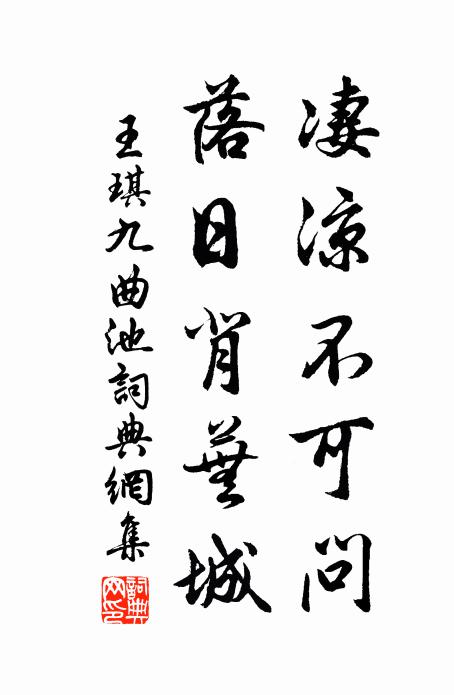 凄涼不可問
落日背蕪城
王琪九曲池詞典網集
詞典網印